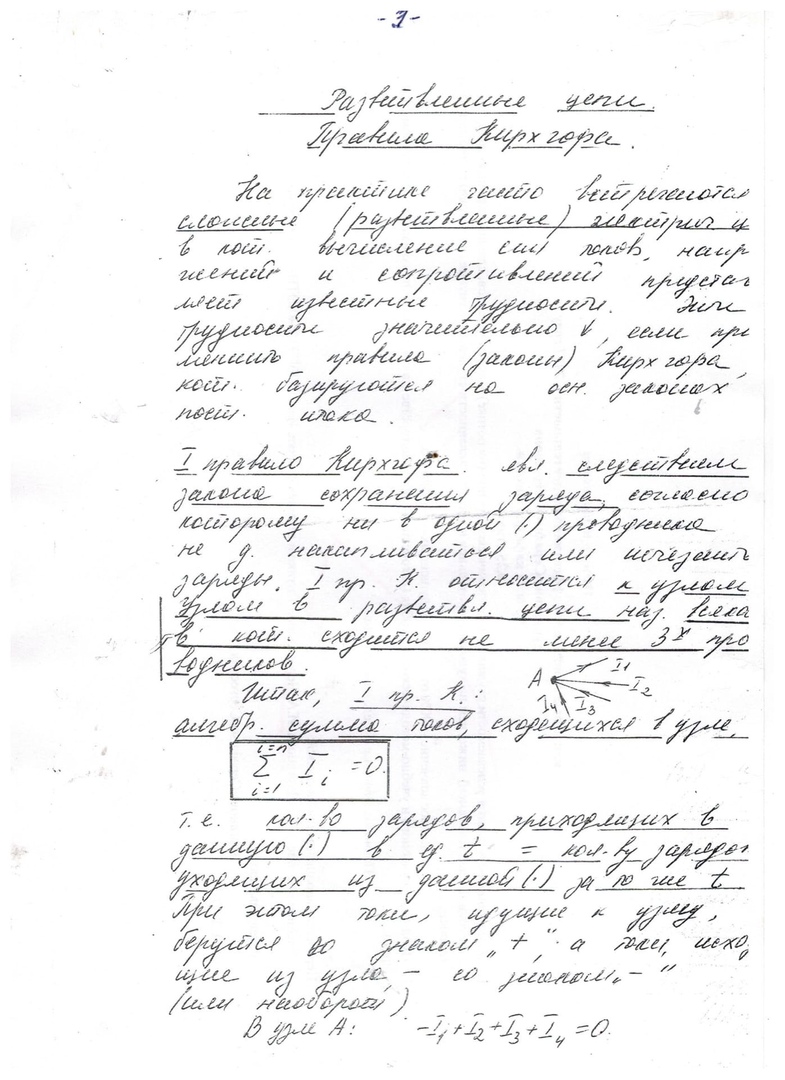 -3-
Разветвленные цепи.
Правила Кирхгофа.
На практике часто встречаются
сложные (разветвленные) электрич ц
в кот. вычисление сил токов, напр
жений и сопротивлений представ
ляет известные трудности. Эти
трудности значительно ↓, если при
менить правила (законы) Кирхгофа,
кот. базируются на осн. законах
пост. тока.
I правило Кирхгофа явл. следствием
закона сохранения заряда, согласно
которому ни в одной (·) проводника
не д. накапливаться или исчезать
заряды. I пр. К. относится к узлам
Узлом в разветвл. цепи наз. всяка
в кот. сходится не менее 3х про
водников.
Итак, I пр. К.:
A I1 I2 I3 I4
алгебр. сумма токов, сходящихся в узле,
i=n
∑ Ii = 0
i=1
т.е. кол-во зарядов, приходящих в
данную (·) в ед. t = кол-ву зарядов
уходящих из данной (·) за то же t
При этом токи, идущие к узлу,
берутся со знаком „+", а токи, исхо
щие из узла, – со знаком „–"
(или наоборот)
В узле А: -I1+I2+I3+I4=0.